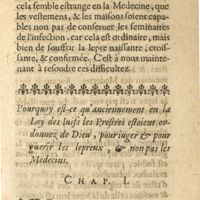 cela semble estrange en la Medecine, que
les vestemens, & les maisons soient capa-
bles non pas de conseruer les seminaires
de l'infection, car cela est ordinaire, mais
bien de souffrir la lepre naissante, crois-
sante, & confirmée. C'est à nous mainte-
nant à resoudre ces difficultez.
Pourquoy est-ce qu'anciennement en la
Loy des Iuifs les Prestres estoient or-
donnez de Dieu, pour iuger & pour
guerir les lepreux, & non pas les
Medecins.
CHAP.